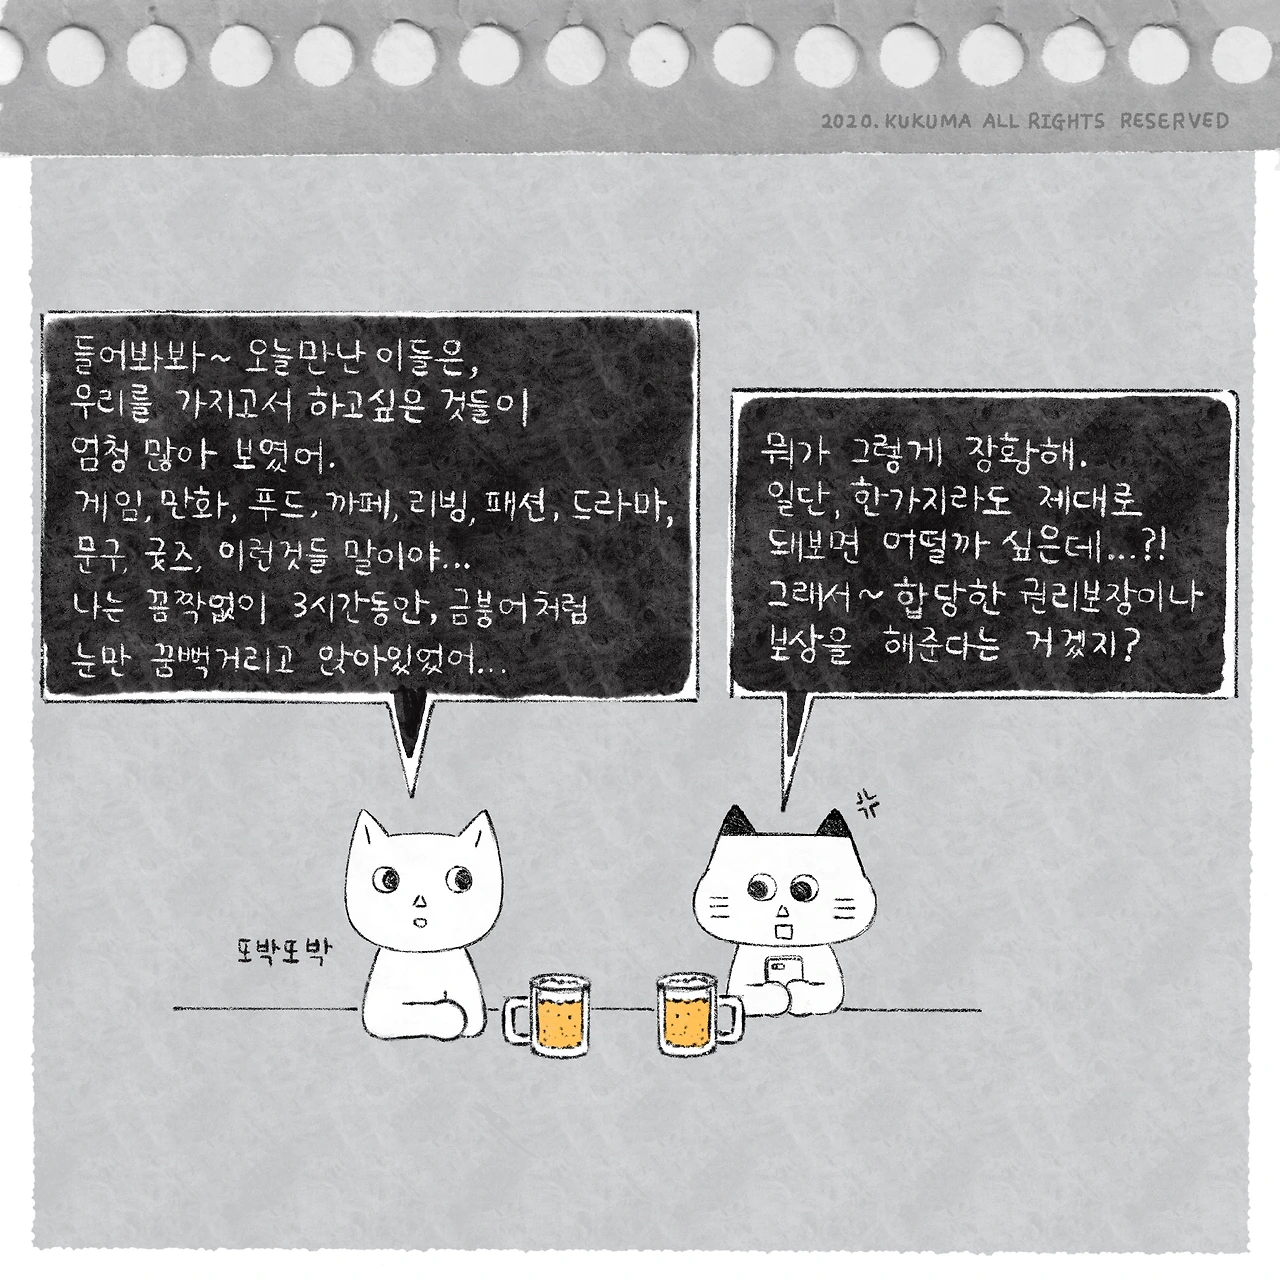 2020. KUKUMA ALL RIGHTS RESERVED
들어봐봐~ 오늘만난 이들은,
우리를 가지고서 하고싶은 것들이
엄청 많아 보였어.
게임, 만화, 푸드, 까페, 리빙, 패션, 드라마,
문구, 굿즈, 이런것들 말이야...
나는 꼼짝없이 3시간동안, 금붕어처럼
눈만 꿈뻑거리고 앉아있었어...
뭐가 그렇게 장황해.
일단, 한가지라도 제대로
돼보면 어떨까 싶은데...?!
그래서~ 합당한 권리보장이나
보상을 해준다는 거겠지?
또박또박